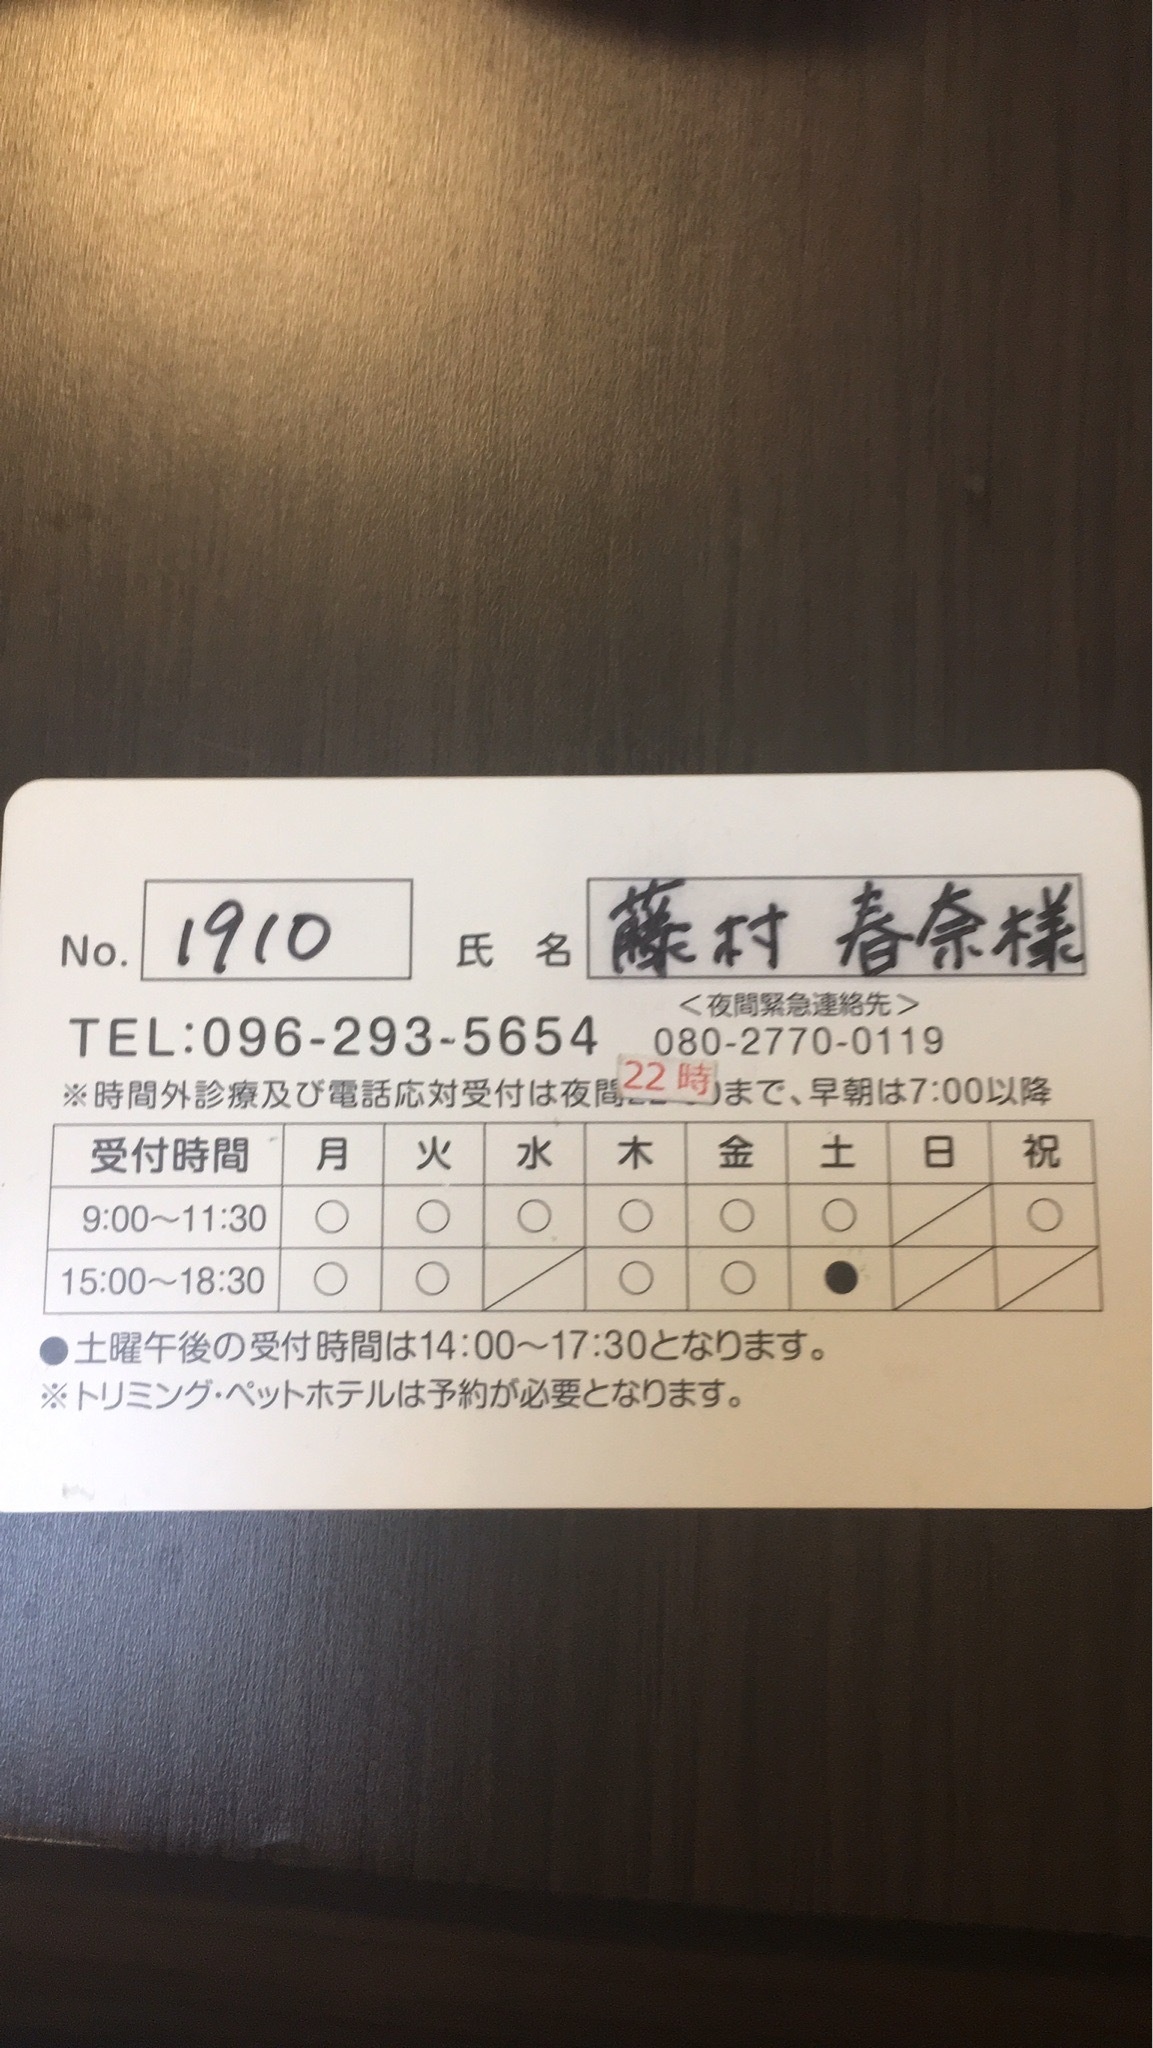 No. 1910 氏 名 藤村 春奈様
<夜間緊急連絡先>
TEL:096-293-5654 080-2770-0119
※時間外診療及び電話応対受付は夜間22時まで、早朝は7:00以降
受付時間 月 火 水 木 金 土 日 祝
9:00~11:30 ○ ○ ○ ○ ○ ○ ／ ○
15:00~18:30 ○ ○ ／ ○ ○ ● ／ ／
●土曜午後の受付時間は14:00~17:30となります。
※トリミング・ペットホテルは予約が必要となります。